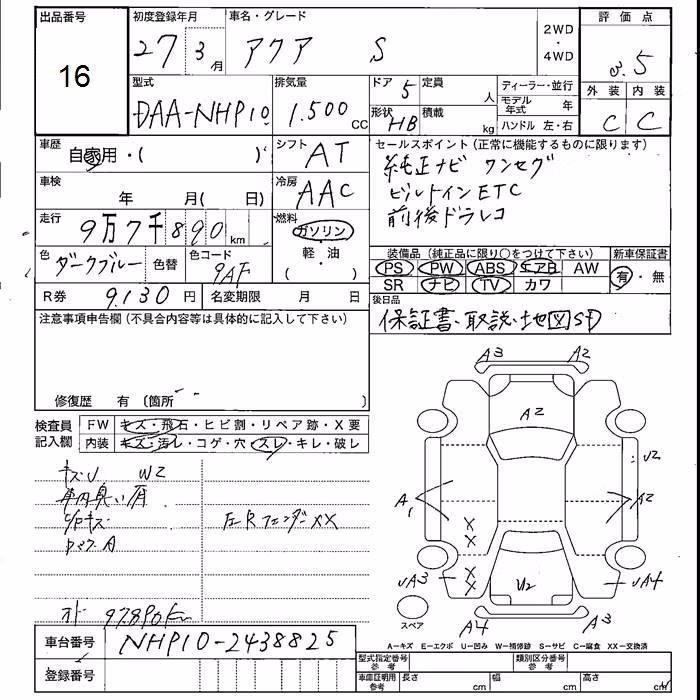 出品番号
16
初度登録年月
27 3月
車名・グレード
アクア S
2WD
・
4WD
評価点
3.5
外装 内装
C C
型式
DAA-NHP10
排気量
1.500 CC
ドア 5
定員 人
形状 HB
積載 kg
ディーラー・並行
モデル年式 年
ハンドル 左・右
車歴
自家用・( )
シフト
AT
車検
年 月( 日)
冷房
AAC
走行
9万7千890km
燃料
ガソリン
・軽・油
( )
色
ダークブルー
色替
色コード
9AF
R券 9.130円
名変期限 月 日
セールスポイント(正常に機能するものに限ります)
純正ナビ ワンセグ
ビルトインETC
前後ドラレコ
装備品(純正品に限り○をつけて下さい)
新車保証書
PS PW ABS エアB AW
SR ナビ TV カワ
有・無
後日品
保証書、取説、地図SD
注意事項申告欄(不具合内容等は具体的に記入して下さい)
修復歴 有(箇所 )
検査員記入欄
FW キズ・飛石・ヒビ割・リペア跡・X要
内装 キズ・汚レ・コゲ・穴・スレ・キレ・破レ
キズU W2
車内臭い有
左Rフェンダー XX
97890km
A3 A2
A2
U2
A1
A2
X
X
X
X
A3
A4
A4 A3
スペア
車台番号 NHP10-2438825
登録番号
A-キズ E-エクボ U-凹み W-補修跡 S-サビ C-腐食 XX-交換済
型式指定番号 参考
類別区分番号 参考
車庫証明用 参考
長さ cm
幅 cm
高さ cm